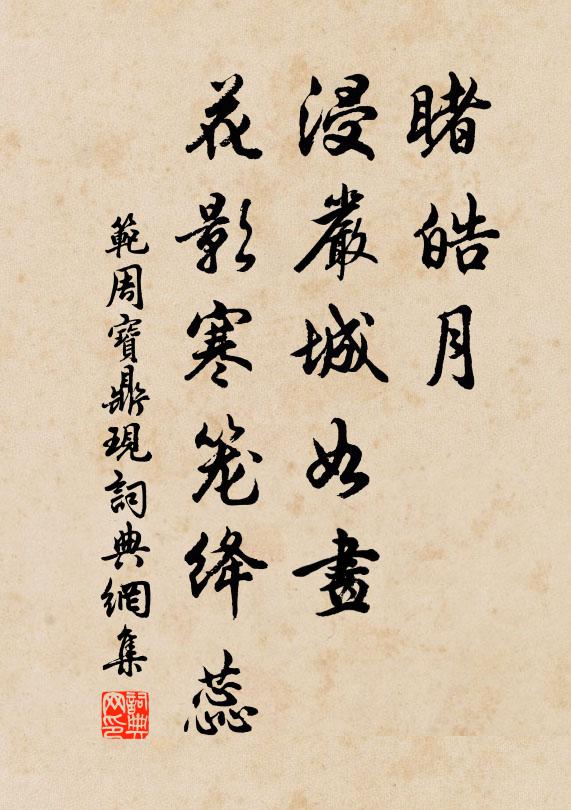 睹皓月
浸嚴城如畫
花影寒笼绛蕊
範周寶鼎現詞典網集
詞典网印